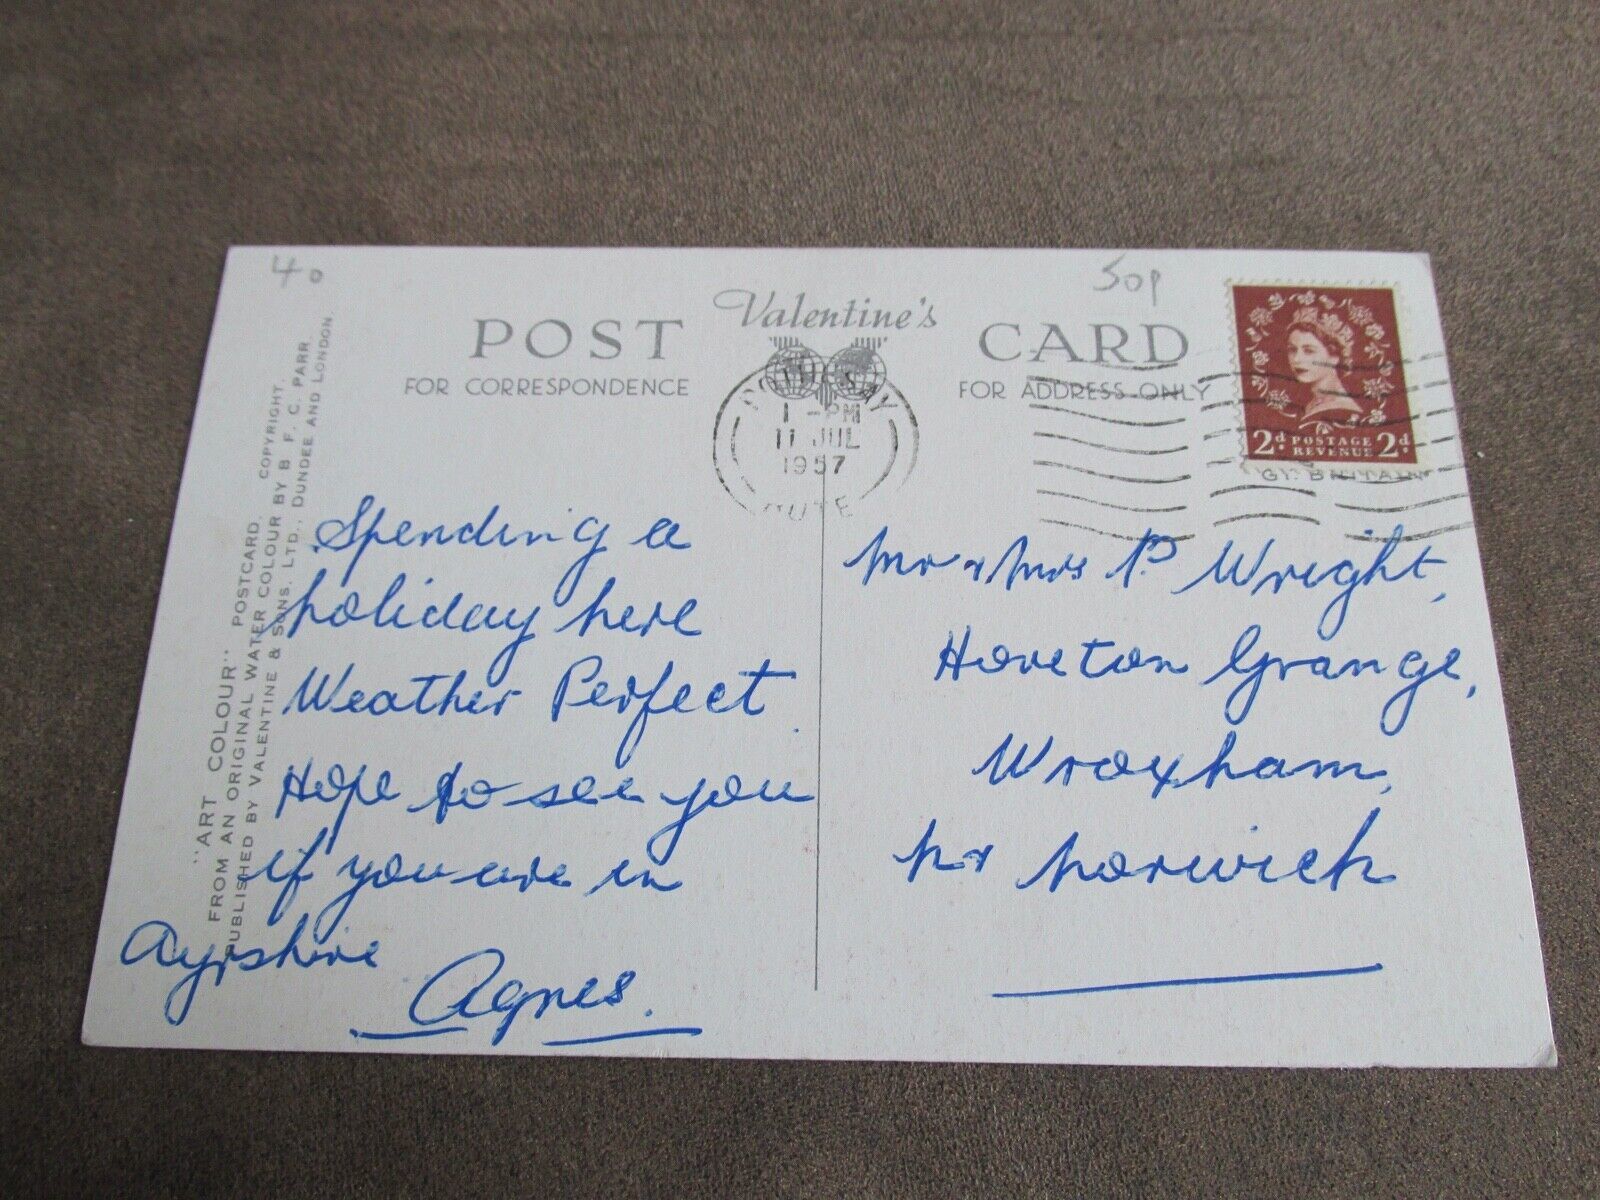 40
50p
Valentine's
POST CARD
FOR CORRESPONDENCE
FOR ADDRESS ONLY
ROTHESAY
1 - PM
11 JUL
1957
BUTE
2d POSTAGE 2d
REVENUE
GT. BRITAIN
"ART COLOUR" POSTCARD. COPYRIGHT.
FROM AN ORIGINAL WATER COLOUR BY B. F. C. PARR.
PUBLISHED BY VALENTINE & SONS. LTD., DUNDEE AND LONDON
Spending a
holiday here
Weather Perfect.
Hope to see you
if you are in
Ayrshire
Agnes.
Mr & Mrs P. Wright,
Hoveton Grange,
Wroxham,
Nr Norwich